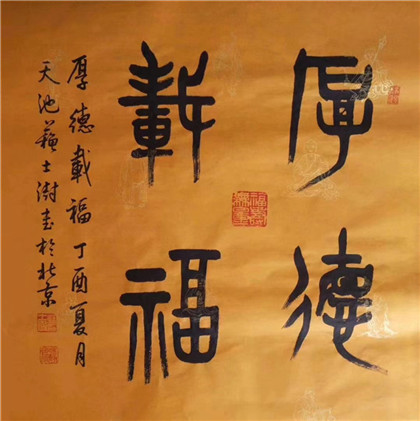 厚德
載福
厚德載福 丁酉夏月
天池蘇士澍書於北京